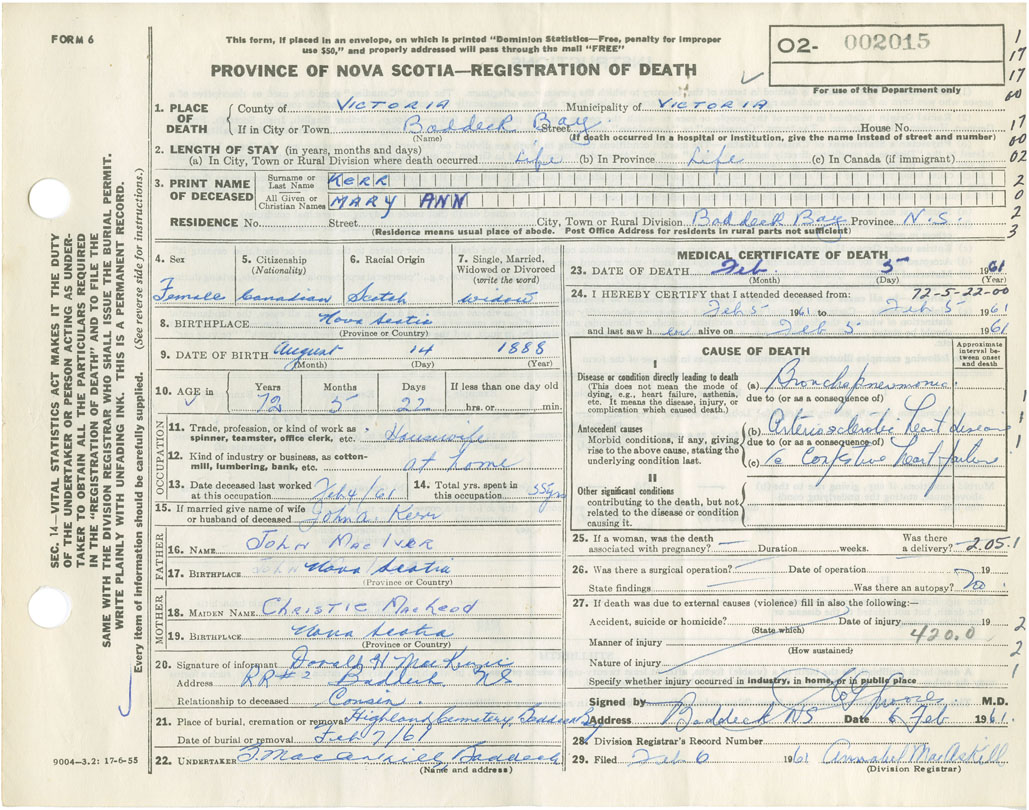 FORM 6
This form, if placed in an envelope, on which is printed "Dominion Statistics—Free, penalty for improper
use $50," and properly addressed will pass through the mail "FREE"
PROVINCE OF NOVA SCOTIA—REGISTRATION OF DEATH
O2- 002015
For use of the Department only
1. PLACE OF DEATH
County of VICTORIA Municipality of VICTORIA
If in City or Town Baddeck Bay Street House No.
(Name) (If death occurred in a hospital or institution, give the name instead of street and number)
2. LENGTH OF STAY (in years, months and days)
(a) In City, Town or Rural Division where death occurred Life (b) In Province Life (c) In Canada (if immigrant)
3. PRINT NAME OF DECEASED
Surname or Last Name KERR
All Given or Christian Names MARY ANN
RESIDENCE No. Street City, Town or Rural Division Baddeck Bay Province N.S.
(Residence means usual place of abode. Post Office Address for residents in rural parts not sufficient)
4. Sex
Female
5. Citizenship
(Nationality)
Canadian
6. Racial Origin
Scotch
7. Single, Married,
Widowed or Divorced
(write the word)
widow
8. BIRTHPLACE Nova Scotia
(Province or Country)
9. DATE OF BIRTH August 14 1888
(Month) (Day) (Year)
10. AGE in
Years Months Days If less than one day old
72 5 22 hrs. or min.
OCCUPATION
11. Trade, profession or kind of work as
spinner, teamster, office clerk, etc. Housewife
12. Kind of industry or business, as cotton-
mill, lumbering, bank, etc. at home
13. Date deceased last worked
at this occupation Feb 4/61
14. Total yrs. spent in
this occupation 55 yrs
15. If married give name of wife
or husband of deceased John A. Kerr
FATHER
16. NAME John MacIver
17. BIRTHPLACE Nova Scotia
(Province or Country)
MOTHER
18. MAIDEN NAME Christie MacLeod
19. BIRTHPLACE Nova Scotia
(Province or Country)
20. Signature of informant Donald H MacKenzie
Address RR#2 Baddeck NS
Relationship to deceased Cousin
21. Place of burial, cremation or removal Highland Cemetery Baddeck Bay
Date of burial or removal Feb 7/61
22. UNDERTAKER Baddeck
(Name and address)
9004—3.2: 17-6-55
MEDICAL CERTIFICATE OF DEATH
23. DATE OF DEATH Feb 5 1961
(Month) (Day) (Year)
24. I HEREBY CERTIFY that I attended deceased from: 72-5-22-00
Feb 5 1961 to Feb 5 1961
and last saw her alive on Feb 5 1961
CAUSE OF DEATH
Approximate
interval be-
tween onset
and death
I
Disease or condition directly leading to death
(This does not mean the mode of
dying, e.g., heart failure, asthenia,
etc. It means the disease, injury, or
complication which caused death.)
(a) Bronchopneumonia
due to (or as a consequence of)
Antecedent causes
Morbid conditions, if any, giving
rise to the above cause, stating the
underlying condition last.
(b) Arteriosclerotic heart disease
due to (or as a consequence of)
(c) c Congestive heart failure
II
Other significant conditions
contributing to the death, but not
related to the disease or condition
causing it.
25. If a woman, was the death
associated with pregnancy? Duration weeks. Was there
a delivery? 2.05.1
26. Was there a surgical operation? Date of operation 19
State findings Was there an autopsy? no
27. If death was due to external causes (violence) fill in also the following:—
Accident, suicide or homicide? Date of injury 19
(State which)
Manner of injury 420.0
(How sustained)
Nature of injury
Specify whether injury occurred in industry, in home, or in public place
Signed by M.D.
Address Baddeck NS Date 6 Feb 1961.
28. Division Registrar's Record Number
29. Filed Feb 6 1961 Annabel MacAskill
(Division Registrar)
1
17
17
60
17
60
02
2
0
2
3
1
1
1
2
2
1
SEC. 14—VITAL STATISTICS ACT MAKES IT THE DUTY
OF THE UNDERTAKER OR PERSON ACTING AS UNDER-
TAKER TO OBTAIN ALL THE PARTICULARS REQUIRED
IN THE "REGISTRATION OF DEATH" AND TO FILE THE
SAME WITH THE DIVISION REGISTRAR WHO SHALL ISSUE THE BURIAL PERMIT.
WRITE PLAINLY WITH UNFADING INK. THIS IS A PERMANENT RECORD.
Every item of information should be carefully supplied. (See reverse side for instructions.)